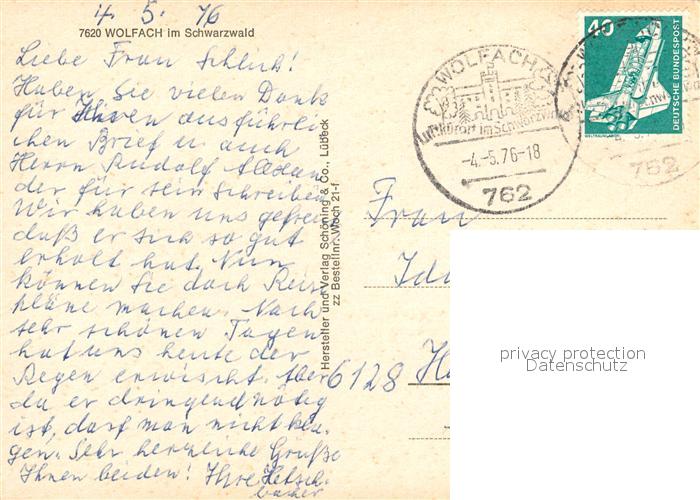 4. 5. 76
7620 WOLFACH im Schwarzwald
Liebe Frau Schlich!
Haben Sie vielen Dank
für Ihren ausführli
chen Brief u. auch
Herrn Rudolf Alexan
der für sein Schreiben
Wir haben uns gefreut
daß er sich so gut
erholt hat. Nun
können Sie doch Reise
pläne machen. Nach
sehr schönen Tagen
hat uns heute der
Regen erwischt. Aber
da er dringend nötig
ist, darf man nicht kla-
gen. Sehr herzliche Grüße
Ihnen beiden! Ihre
Hersteller und Verlag Schöning & Co., Lübeck
zz Bestellnr. Wo
21-f
WOLFACH
Luftkurort im Schwarzwald
-4.-5.76-18
762
40
DEUTSCHE BUNDESPOST
WELTRAUMLABOR
762
Frau
6128
privacy protection
Datenschutz